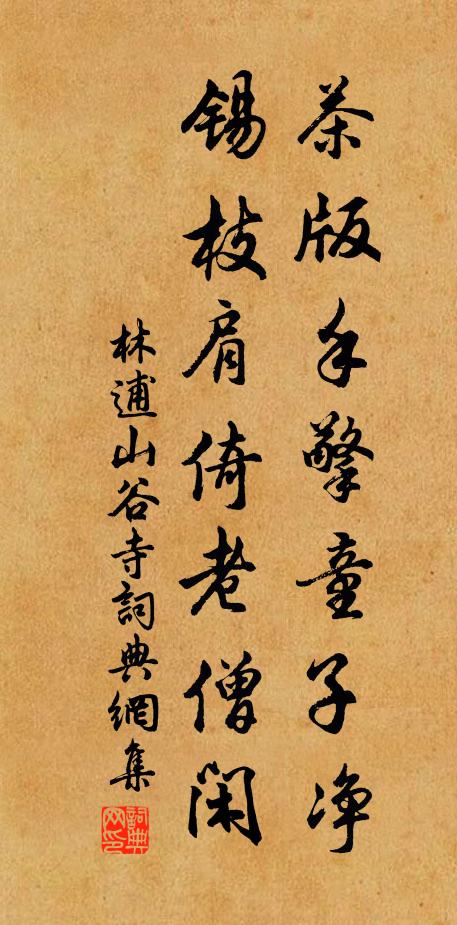 茶版手擎童子净
锡枝肩倚老僧闲
林逋山谷寺詞典網集
詞典网印